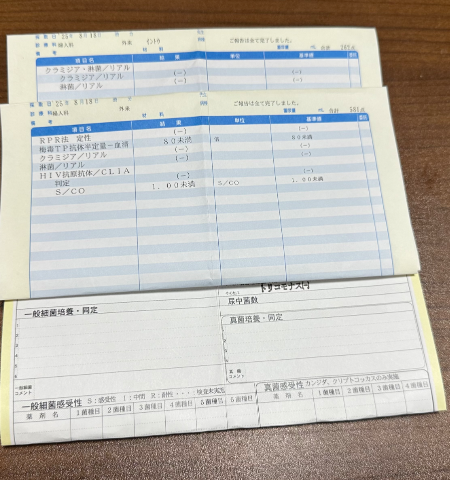 25年 8月18日
婦人科 外来 イントウ
ご報告は全て完了しました。
備考
材料
項目名 結果 単位 基準値
クラミジア・淋菌／リアル
クラミジア／リアル (-) (-)
淋菌／リアル (-) (-)
25年 8月18日
婦人科 外来
ご報告は全て完了しました。
備考
材料
項目名 結果 単位 基準値
RPR法 定性 (-) (-)
梅毒TP抗体半定量－血清 80未満 80未満
クラミジア／リアル (-) (-)
淋菌／リアル (-) (-)
HIV抗原抗体／CLIA
判定 (-) (-)
S／CO 1.00未満 S／CO 1.00未満
トリコモナス(-)
尿中菌数
一般細菌培養・同定
真菌培養・同定
1
2
3
4
5
6
一般細菌
コメント
真菌
コメント
一般細菌感受性 S：感受性 I：中間 R：耐性 検査未実施
真菌感受性 カンジダ、クリプトコッカスのみ実施
薬剤名 1菌種目 2菌種目 3菌種目 4菌種目 5菌種目 6菌種目
薬剤名 1菌種目 2菌種目 3菌種目 4菌種目